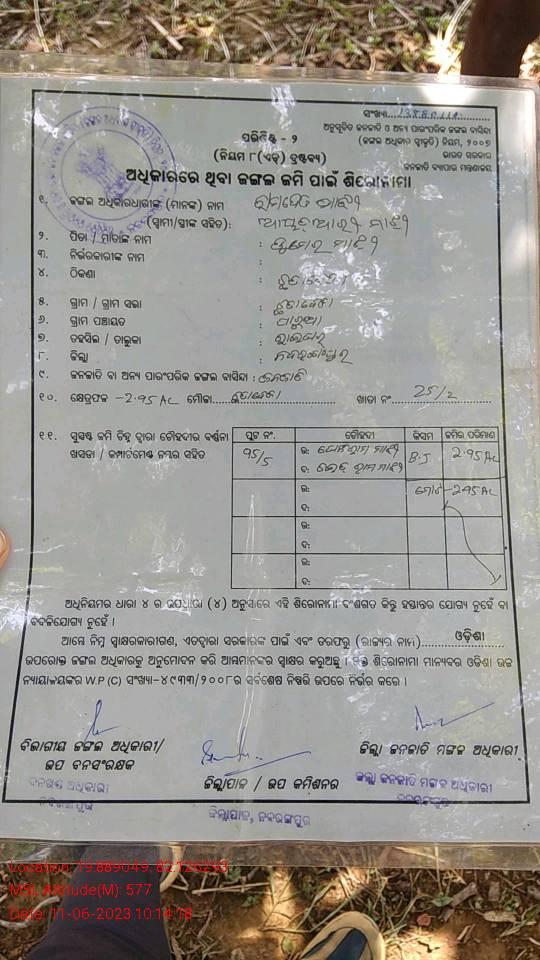 ସଂଖ୍ୟା
ଅନୁସୂଚିତ ଜନଜାତି ଓ ଅନ୍ୟ ପାରମ୍ପରିକ ଜଙ୍ଗଲ ବାସିନ୍ଦା
(ଜଙ୍ଗଲ ଅଧିକାର ସ୍ବୀକୃତି) ନିୟମ, ୨୦୦୭
ଭାରତ ସରକାର
ଜନଜାତି ବ୍ୟାପାର ମନ୍ତ୍ରଣାଳୟ
ପରିଶିଷ୍ଟ - ୨
(ନିୟମ ୮(ଏଚ୍) ଦ୍ରଷ୍ଟବ୍ୟ)
ଅଧିକାରରେ ଥିବା ଜଙ୍ଗଲ ଜମି ପାଇଁ ଶିରୋନାମା
୧. ଜଙ୍ଗଲ ଅଧିକାରଧାରୀଙ୍କ (ମାନଙ୍କ) ନାମ
(ସ୍ବାମୀ/ସ୍ତ୍ରୀଙ୍କ ସହିତ): ମାଝୀ
୨. ପିତା / ମାତାଙ୍କ ନାମ : ମାଝୀ
୩. ନିର୍ଭରକାରୀଙ୍କ ନାମ :
୪. ଠିକଣା :
୫. ଗ୍ରାମ / ଗ୍ରାମ ସଭା :
୬. ଗ୍ରାମ ପଞ୍ଚାୟତ :
୭. ତହସିଲ / ତାଲୁକା : ରାଇଘର
୮. ଜିଲ୍ଲା : ନବରଙ୍ଗପୁର
୯. ଜନଜାତି ବା ଅନ୍ୟ ପାରଂପରିକ ଜଙ୍ଗଲ ବାସିନ୍ଦା : ଜନଜାତି
୧୦. କ୍ଷେତ୍ରଫଳ -2.95 AC ମୌଜା ଖାତା ନଂ 25/2
୧୧. ସୁସ୍ପଷ୍ଟ ଜମି ଚିହ୍ନ ଦ୍ୱାରା ଚୌହଦୀର ବର୍ଣ୍ଣନା
ଖସଡା / କମ୍ପାର୍ଟମେଣ୍ଟ ନମ୍ବର ସହିତ
ପ୍ଲଟ ନଂ. ଚୌହଦୀ କିସମ ଜମିର ପରିମାଣ
95/5 ଉ: ମାଝୀ B.J 2.95 AC
ଦ: ମାଝୀ
ଉ: ମୋଟ - 2.95 AC
ଦ:
ଉ:
ଦ:
ଉ:
ଦ:
ଅଧିନିୟମର ଧାରା ୪ ର ଉପଧାରା (୪) ଅନୁସାରେ ଏହି ଶିରୋନାମା ବଂଶଗତ କିନ୍ତୁ ହସ୍ତାନ୍ତର ଯୋଗ୍ୟ ନୁହେଁ ବା
ବଦଳିଯୋଗ୍ୟ ନୁହେଁ ।
ଆମ୍ଭେ ନିମ୍ନ ସ୍ୱାକ୍ଷରକାରୀଗଣ, ଏତଦ୍ଵାରା ସରକାରଙ୍କ ପାଇଁ ଏବଂ ତରଫରୁ (ରାଜ୍ୟର ନାମ) ଓଡ଼ିଶା
ଉପରୋକ୍ତ ଜଙ୍ଗଲ ଅଧିକାରକୁ ଅନୁମୋଦନ କରି ଆମ୍ଭମାନଙ୍କର ସ୍ୱାକ୍ଷର କରୁଅଛୁ । ଉକ୍ତ ଶିରୋନାମା ମାନ୍ୟବର ଓଡ଼ିଶା ଉଚ୍ଚ
ନ୍ୟାୟାଳୟଙ୍କର W.P (C) ସଂଖ୍ୟା-୪୯୩୩/୨୦୦୮ର ସର୍ବଶେଷ ନିଷ୍ପତ୍ତି ଉପରେ ନିର୍ଭର କରେ ।
ବିଭାଗୀୟ ଜଙ୍ଗଲ ଅଧିକାରୀ/
ଉପ ବନସଂରକ୍ଷକ
ଜିଲ୍ଲାପାଳ / ଉପ କମିଶନର
ଜିଲ୍ଲା ଜନଜାତି ମଙ୍ଗଳ ଅଧିକାରୀ
ଜିଲ୍ଲା ଜନଜାତି ମଙ୍ଗଳ ଅଧିକାରୀ
ନବରଙ୍ଗପୁର
ଜିଲ୍ଲାପାଳ, ନବରଙ୍ଗପୁର
Location: 19.889049, 82.126293
MSL Altitude(M): 577
Date: 11-06-2023 10:14:18